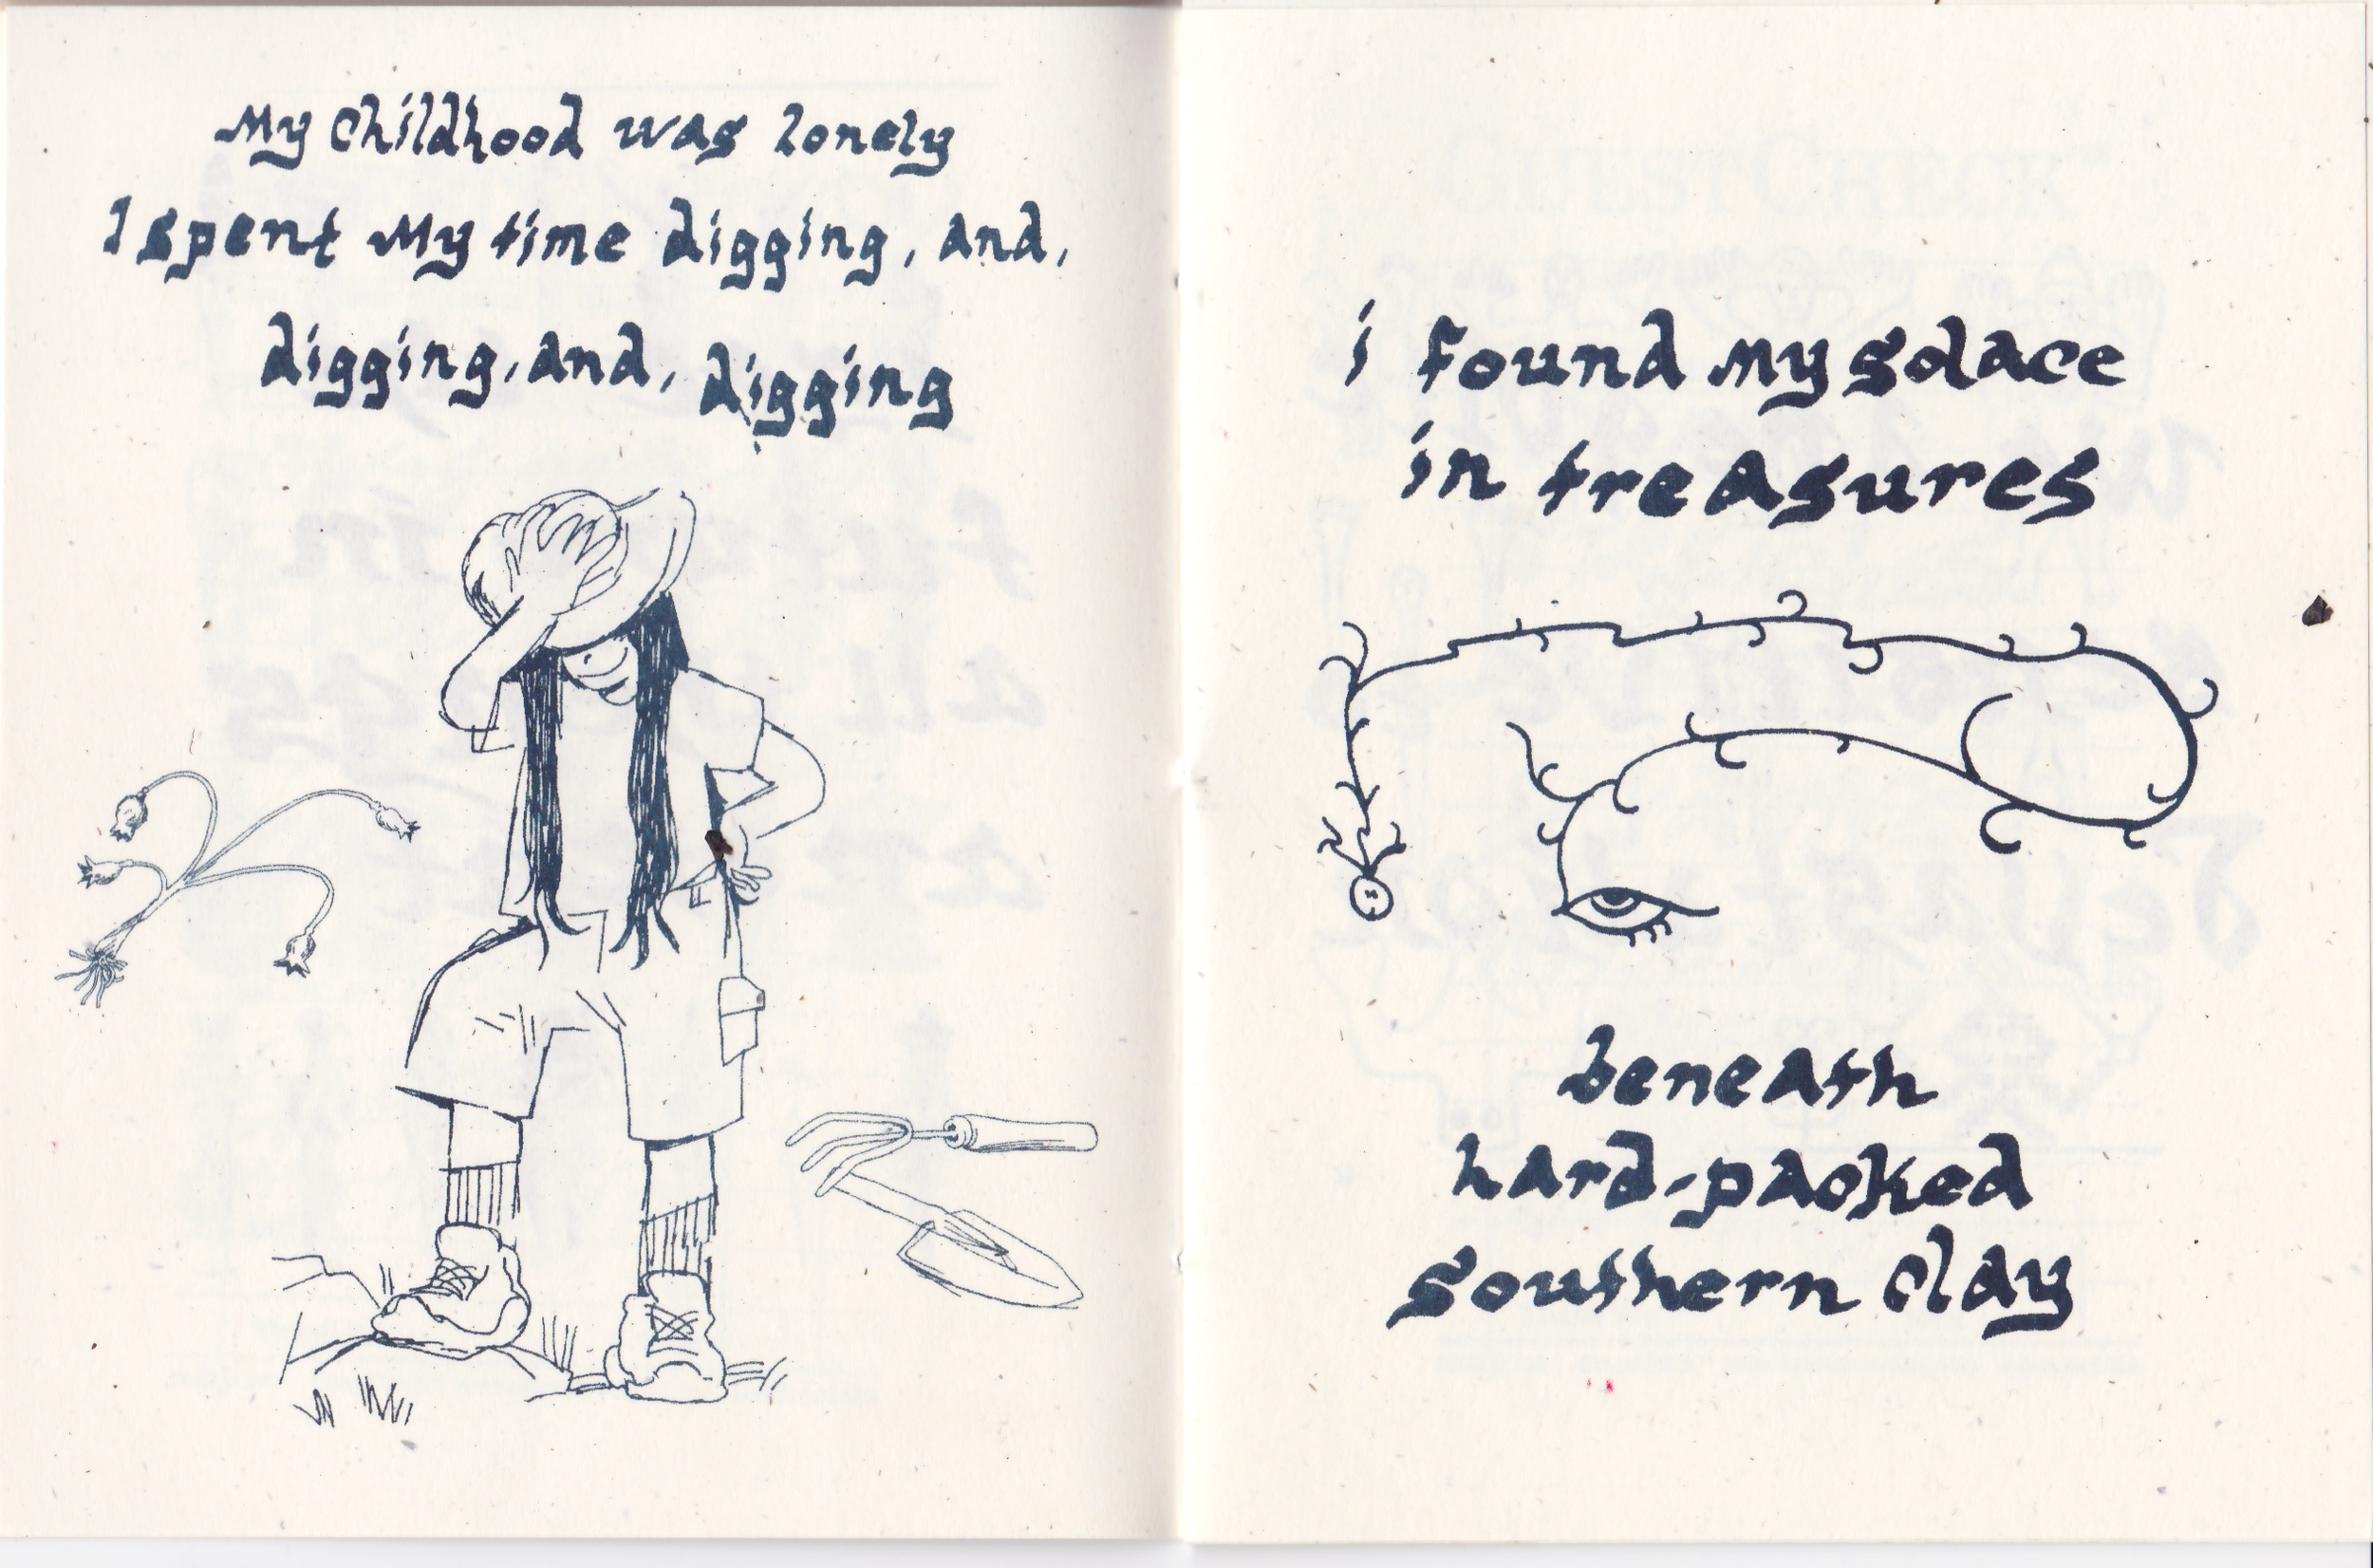 My Childhood was lonely
I spent My time digging, and,
digging, and, digging
i found my solace
in treasures
beneath
hard-packed
southern Clay